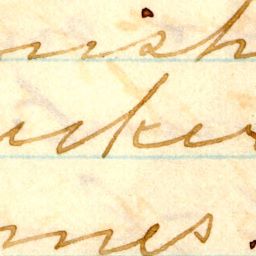 nish
ucker
mes.